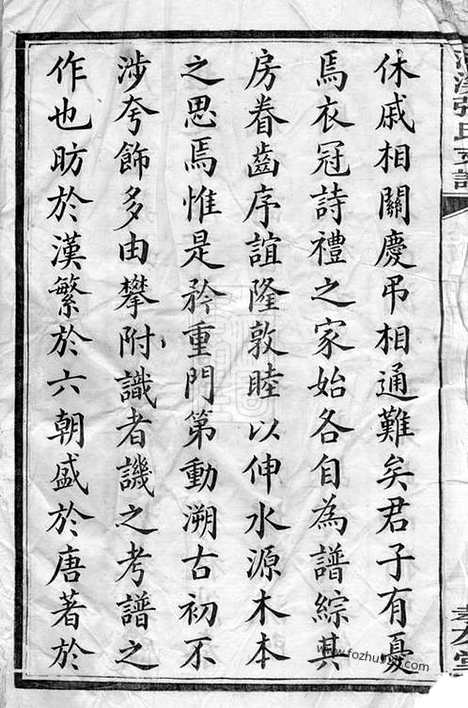 休戚相關慶弔相通難矣君子有憂
焉衣冠詩禮之家始各自為譜綜其
房眷齒序誼隆敦睦以伸水源木本
之思焉惟是矜重門第動溯古初不
涉夸飾多由攀附識者譏之考譜之
作也昉於漢繁於六朝盛於唐著於
www.fozhu